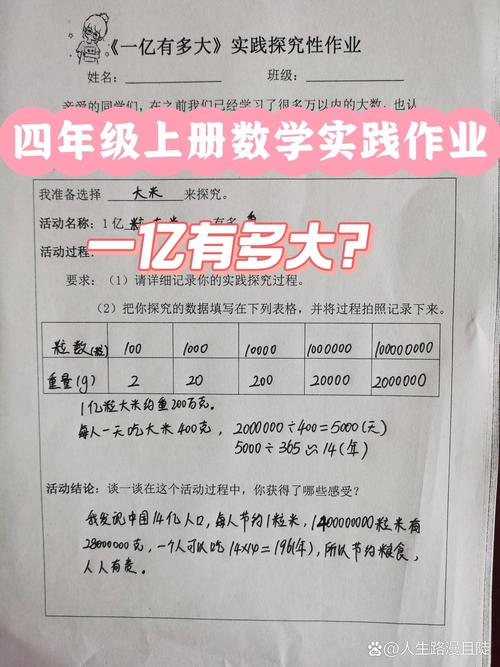 《一亿有多大》实践探究性作业
姓名：__________ 班级：__________
亲爱的同学们，在之前我们已经学习了很多万以内的大数，也认
四年级上册数学实践作业
我准备选择 大米 来探究。
活动名称：1亿粒大米有多
一亿有多大？
活动过程：
要求：（1）请详细记录你的实践探究过程。
（2）把你探究的数据填写在下列表格，并将过程拍照记录下来。
粒数(粒) 100 1000 10000 1000000 100000000
重量(g) 2 20 200 20000 2000000
1亿粒大米约重200万克。
每人一天吃大米400克， 2000000÷400=5000(天)
5000÷365≈14(年)
活动结论：谈一谈在这个活动过程中，你获得了哪些感受？
我发记中国14亿人口，每人节约1粒米，1400000000粒米有
28000000克，一个人可以吃14×14=196(年)，所以节约粮食，
人人有责。
@人生路漫且陡